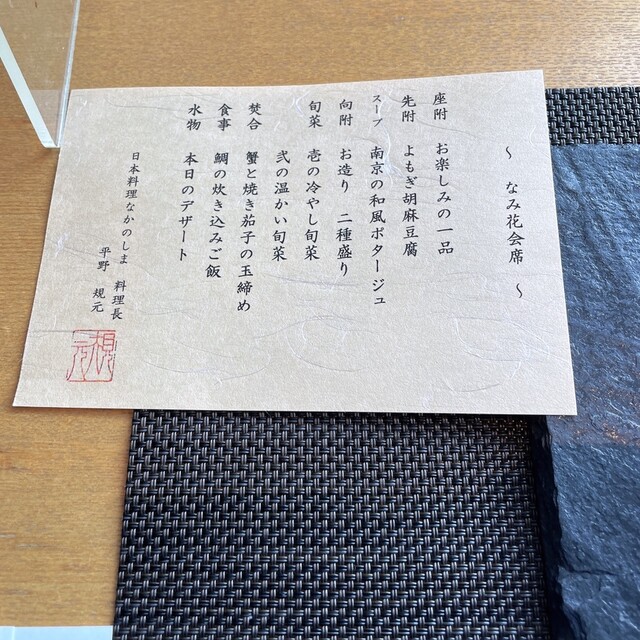 ～ なみ花会席 ～
座附 お楽しみの一品
先附 よもぎ胡麻豆腐
スープ 南京の和風ポタージュ
向附 お造り 二種盛り
旬菜 壱の冷やし旬菜
弐の温かい旬菜
焚合 蟹と焼き茄子の玉締め
食事 鯛の炊き込みご飯
水物 本日のデザート
日本料理なかのしま 料理長
平野 規元
規元